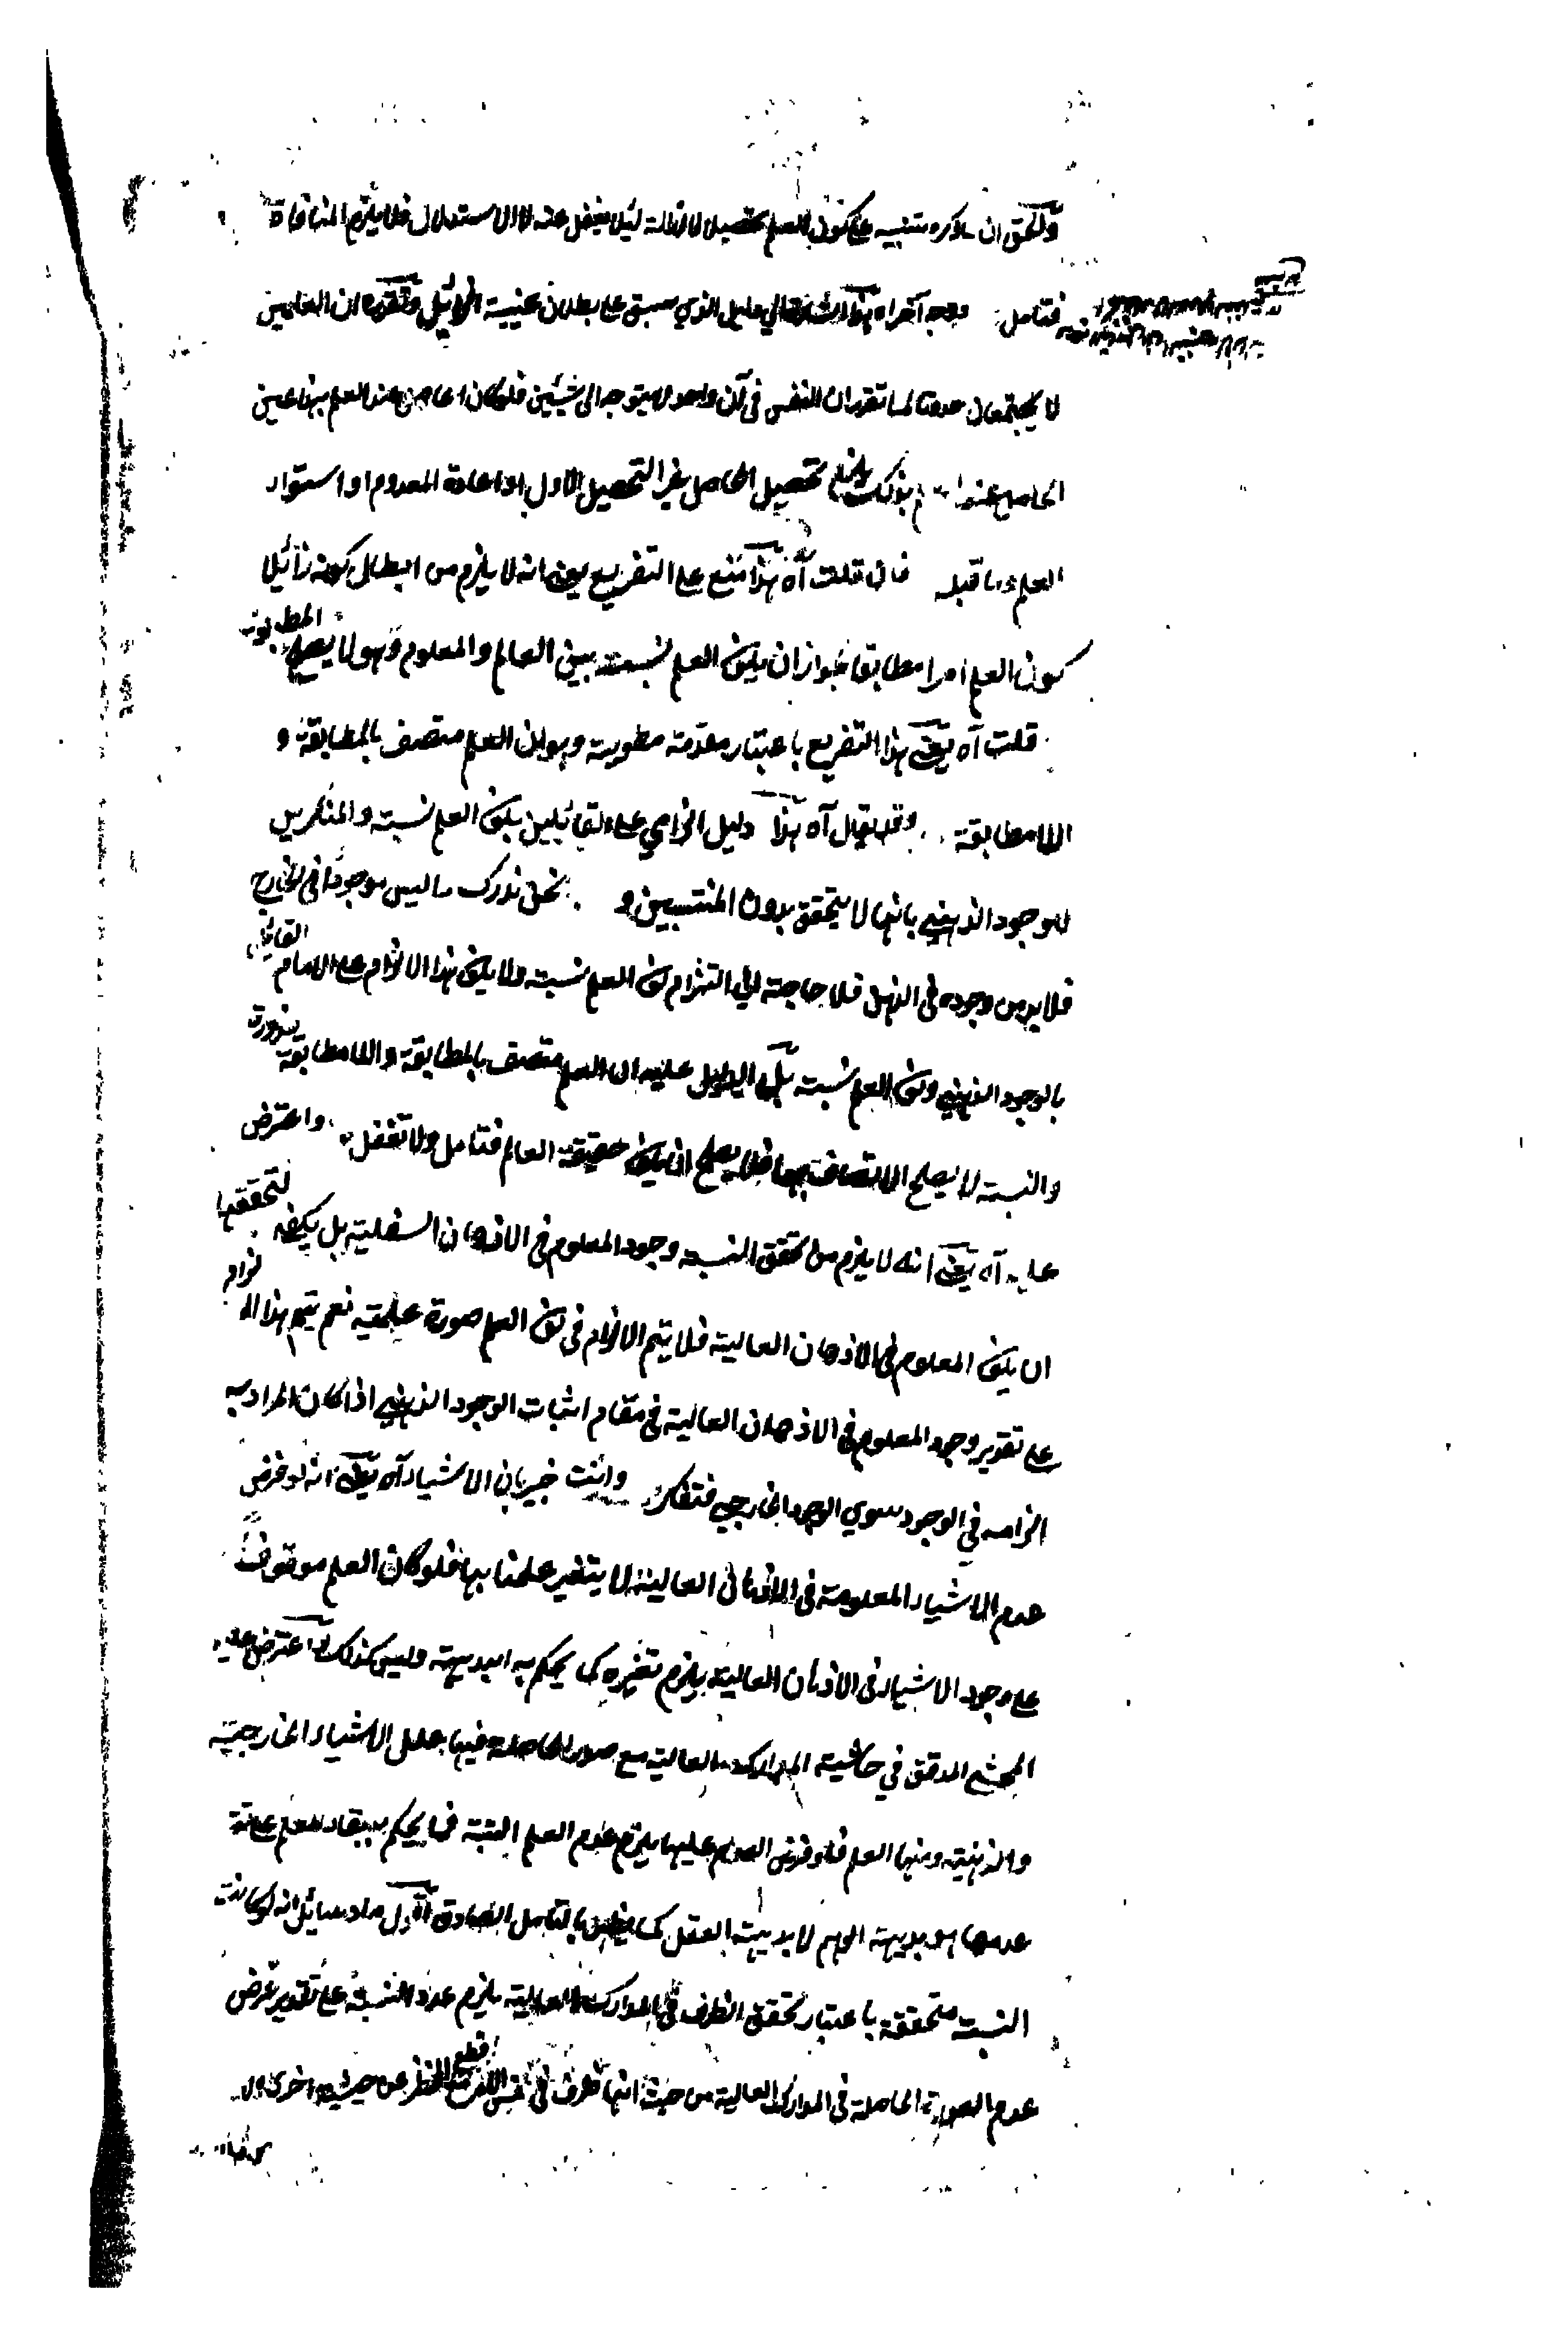 والحق ان ما ذكره تنبيه على كون العلم تحصيلا لا ازالة لئلا يغفل عنه لا الاستدلال فلا يلزم المنافاة
فتامل وجه آخر اه هذا اشارة الى دليل الذي سبق على بطلان عينية الزائل وتقريره ان العلمين
لا يجتمعان حدوثا لما تقرر ان النفس في آن واحد لا يتوجه الى شيئين فلو كان الحاصل عند العلم بهذا عين
الحاصل عند العلم بذلك يلزم تحصيل الحاصل بغير التحصيل الاول او اعادة المعدوم او استواء
العلم وما قبله فان قلت آه هذا منع على التفريع يعني انه لا يلزم من ابطال كونه زائلا
كون العلم امرا مطابقا لجواز ان يكون العلم نسبة بين العالم والمعلوم وهو لا يصلح المطابقة
قلت آه يعني هذا التفريع باعتبار مقدمة مطوية وهو ان العلم متصف بالمطابقة و
اللامطابقة وقد يقال آه هذا دليل الزامي على القائلين بكون العلم نسبة والمنكرين
للوجود الذهني بانها لا يتحقق بدون المنتسبين و نحن ندرك ما ليس موجودا في الخارج
فلا بد من وجوده في الذهن فلا حاجة الى التزام كون العلم نسبة ولا يكون هذا الالزام على الامام القائل
بالوجود الذهني وكون العلم نسبة بل الدليل عليه ان العلم متصف بالمطابقة واللامطابقة ضرورة
والنسبة لا يصلح الاتصاف بهما فلا يصلح ان يكون حقيقة العلم فتامل ولا تغفل واعترض
عليه آه يعني انه لا يلزم من تحقق النسبة وجود المعلوم في الاذهان السفلية بل يكفي لتحققها
ان يكون المعلوم في الاذهان العالية فلا يتم الالزام في كون العلم صورة علمية نعم يتم هذا الالزام
على تقدير وجود المعلوم في الاذهان العالية في مقام اثبات الوجود الذهني اذا كان المراد به
الزامه في الوجود سوى الوجود الخارجي فتفكر وانت خبير بان الاشياء آه يعني انه لو فرض
عدم الاشياء المعلومة في الاذهان العالية لا يتغير علمنا بها فلو كان العلم موقوفا
على وجود الاشياء في الاذهان العالية يلزم تغيره كما يحكم به البديهة وليس كذلك واعترض عليه
المحشي المدقق في حاشية المدارك العالية مع صور الحاصلة فيها علل الاشياء الخارجية
والذهنية ومنها العلم فلو فرض العدم عليها يلزم عدم العلم البتة فما يحكم ببقاء العلم على تقدير
عدمها هو بديهة الوهم لا بديهة العقل كما يظهر بالتامل الصادق اقول مراد سائل انه لو كانت
النسبة متحققة باعتبار تحقق الطرف في المدارك العالية يلزم عدم النسبة على تقدير فرض
عدم الصورة الحاصلة في المدارك العالية من حيث انها طرف في نفس الامر مع قطع النظر عن حيثية اخرى ولا